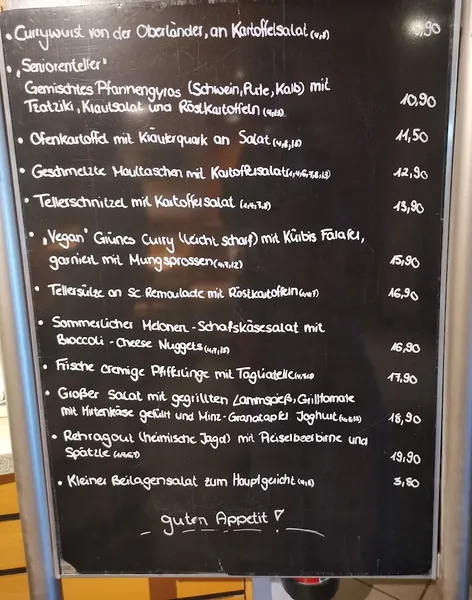 • Currywurst von der Oberländer, an Kartoffelsalat (4,8) 9,90
• „Seniorenteller"
Gemischtes Pfannengyros (Schwein, Pute, Kalb) mit
Tzatziki, Krautsalat und Röstkartoffeln 10,90
• Ofenkartoffel mit Kräuterquark an Salat 11,50
• Geschmelzte Maultaschen mit Kartoffelsalat 12,90
• Tellerschnitzel mit Kartoffelsalat 13,90
• „Vegan" Grünes Curry (leicht scharf) mit Kürbis Falafel,
garniert mit Mungsprossen 15,90
• Tellersülze an Sc Remoulade mit Röstkartoffeln 16,90
• Sommerlicher Melonen-Schafskäsesalat mit
Broccoli-Cheese Nuggets 16,90
• Frische cremige Pfifferlinge mit Tagliatelle 17,90
• Großer Salat mit gegrillten Lammspieß, Grilltomate
mit Hirtenkäse gefüllt und Minz-Granatapfel Joghurt 18,90
• Rehragout (heimische Jagd) mit Preiselbeerbirne und
Spätzle 19,90
• Kleiner Beilagensalat zum Hauptgericht (4,8) 3,80
guten Appetit !